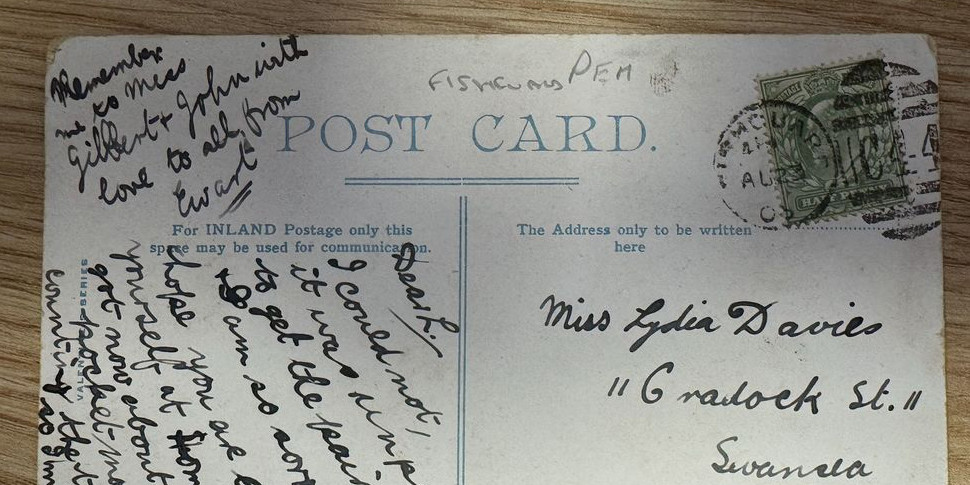 Remember
me to Miss
Gilbert & John with
love to all from
Ewart
PEM
POST CARD.
For INLAND Postage only this
space may be used for communication.
The Address only to be written
here
AU
Dear L.
I could not,
it was
to get the
I am so
hope you are
yourself at
got now about
pocket
counting the
SERIES
Miss Lydia Davies
"Cradock St."
Swansea